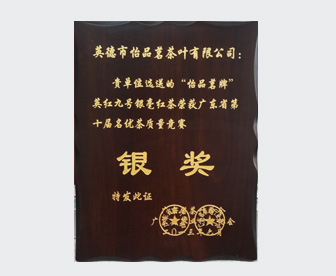 英德市怡品茗茶叶有限公司：
贵单位选送的“怡品茗牌”
英红九号银毫红茶荣获广东省第
十届名优茶质量竞赛
银 奖
特发此证
二〇一三年